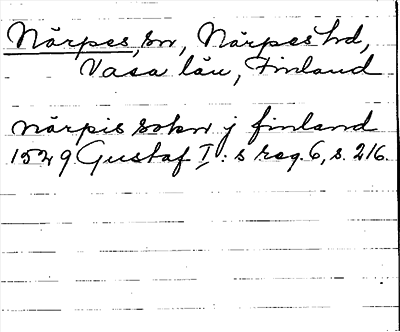 Närpes, sn, Närpes hd,
Vasa län, Finland
närpis sokn j finland
1529 Gustaf I:s reg. 6, s. 216.